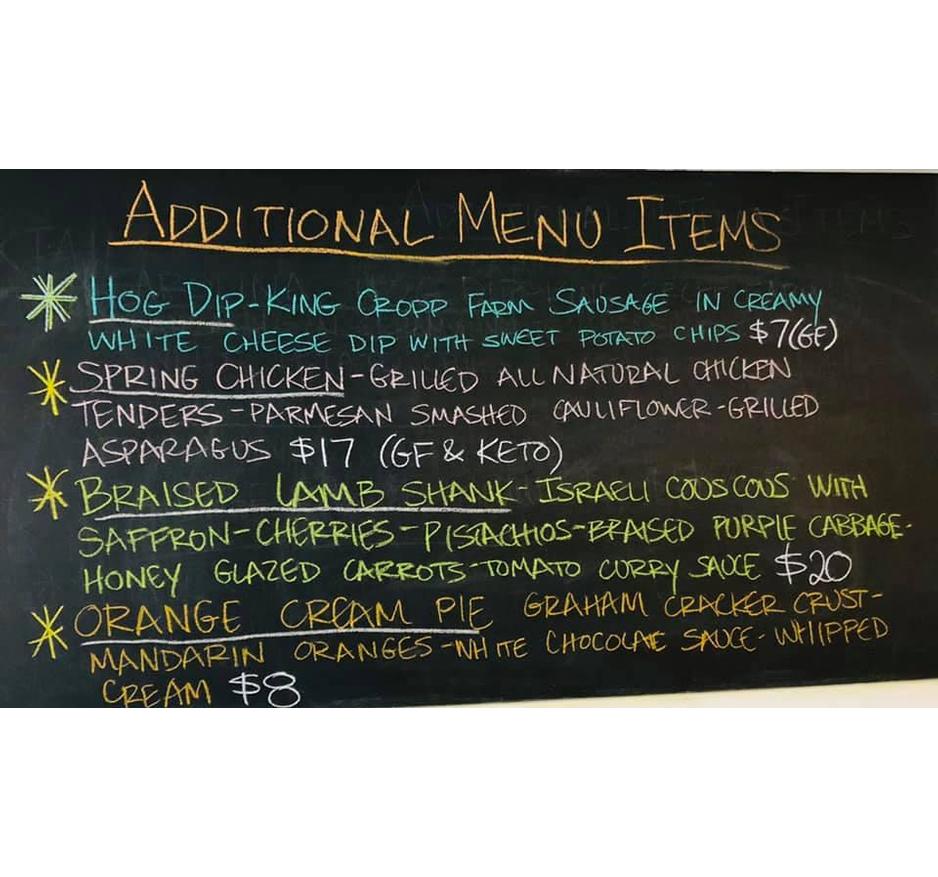 ADDITIONAL MENU ITEMS
HOG DIP-KING CROPP FARM SAUSAGE IN CREAMY
WHITE CHEESE DIP WITH SWEET POTATO CHIPS $7(GF)
SPRING CHICKEN-GRILLED ALL NATURAL CHICKEN
TENDERS-PARMESAN SMASHED CAULIFLOWER-GRILLED
ASPARAGUS $17 (GF & KETO)
BRAISED LAMB SHANK-ISRAELI COUSCOUS WITH
SAFFRON-CHERRIES-PISTACHIOS-BRAISED PURPLE CABBAGE-
HONEY GLAZED CARROTS-TOMATO CURRY SAUCE $20
ORANGE CREAM PIE GRAHAM CRACKER CRUST-
MANDARIN ORANGES-WHITE CHOCOLATE SAUCE-WHIPPED
CREAM $8